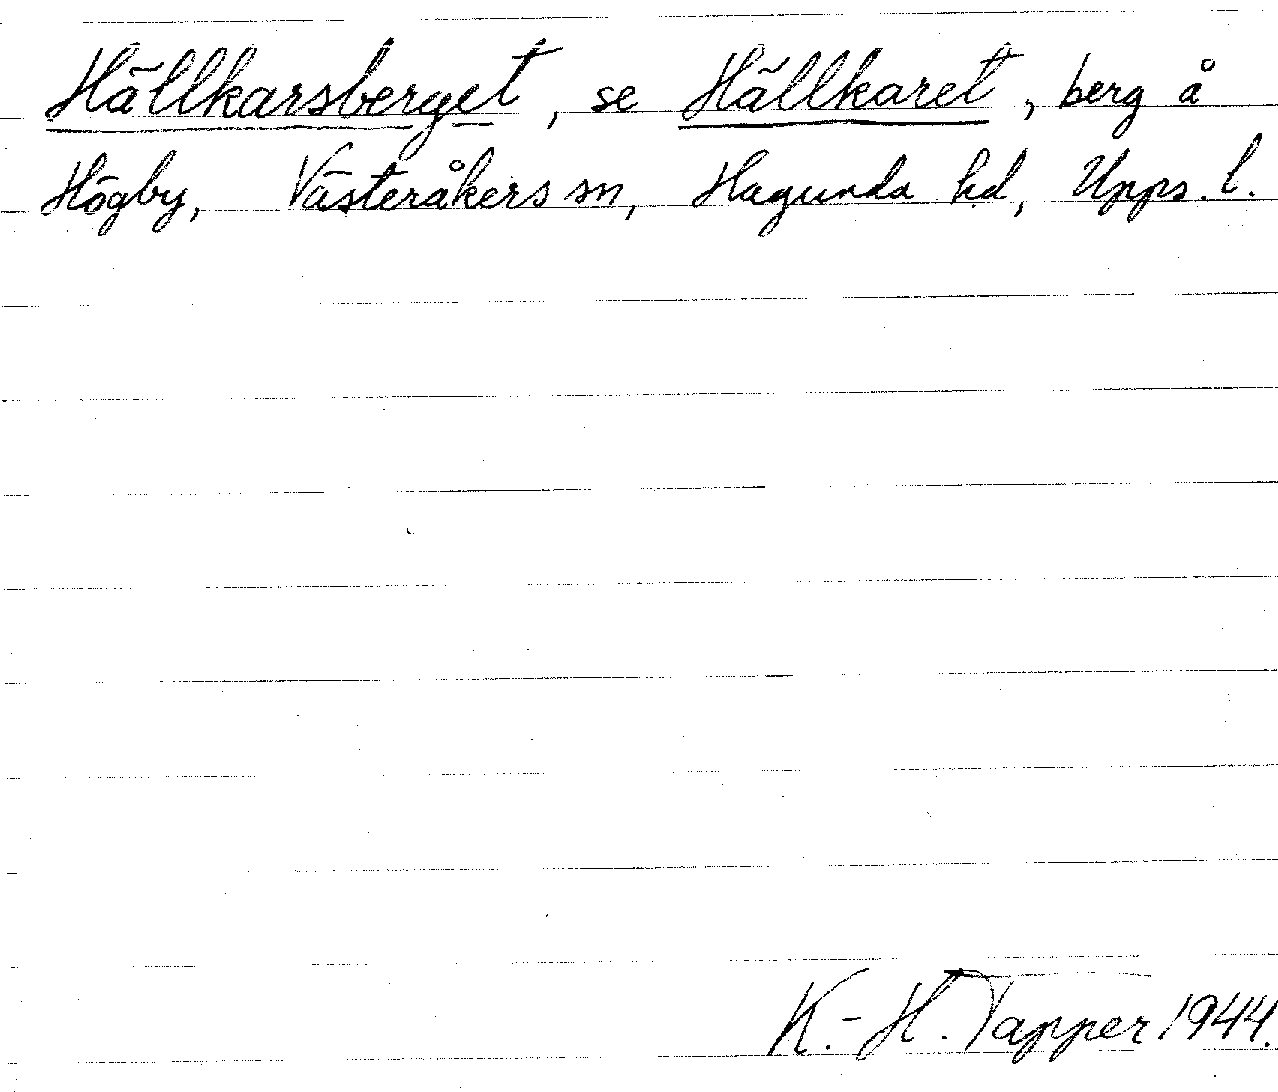 Hällkarsberget, se Hällkaret, berg å
Högby, Västeråkers sn, Hagunda hd, Upps. l.
K.-H. Tapper 1944.